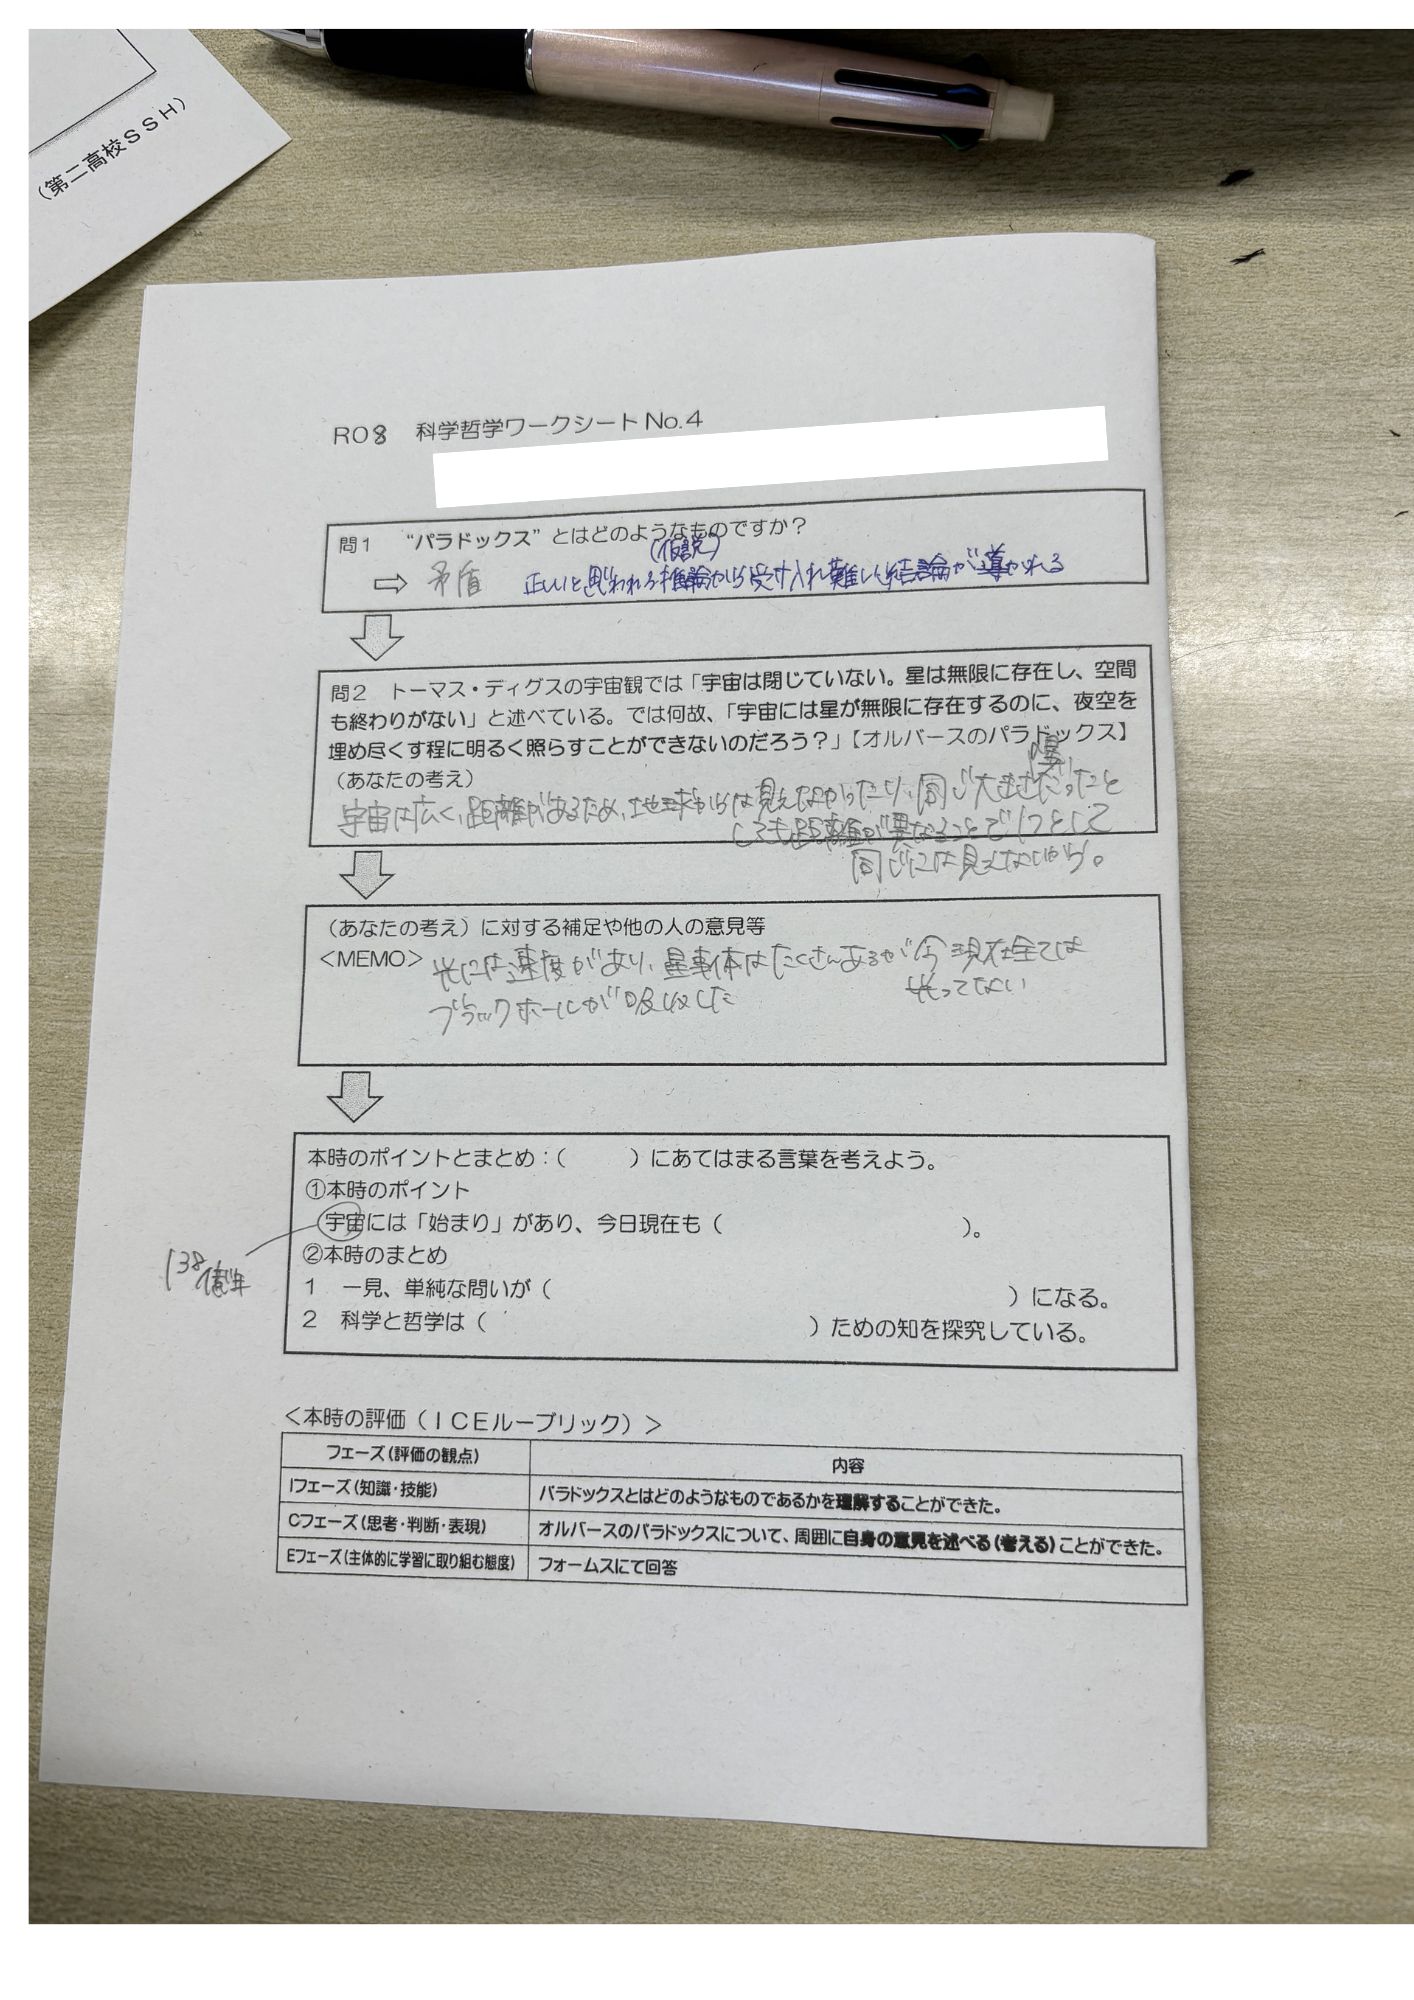 (第二高校ＳＳＨ)
R08 科学哲学ワークシート No.4
問1 “パラドックス”とはどのようなものですか？
(仮説)
⇨ 矛盾 正しいと思われる推論から受け入れ難い結論が導かれる
問2 トーマス・ディグスの宇宙観では「宇宙は閉じていない。星は無限に存在し、空間
も終わりがない」と述べている。では何故、「宇宙には星が無限に存在するのに、夜空を
埋め尽くす程に明るく照らすことができないのだろう？」【オルバースのパラドックス】
(あなたの考え)
宇宙は広く、距離があるため、地球からは見えなかったり、同じ大きさだったと
しても距離が異なることで1つとして
同じには見えないから。
(あなたの考え) に対する補足や他の人の意見等
<MEMO> 光には速度があり、星自体はたくさんあるが今現在全ては
光ってない
ブラックホールが吸収した
本時のポイントとまとめ：( ) にあてはまる言葉を考えよう。
①本時のポイント
宇宙には「始まり」があり、今日現在も ( )。
138億年
②本時のまとめ
1 一見、単純な問いが ( ) になる。
2 科学と哲学は ( ) ための知を探究している。
<本時の評価 (ＩＣＥルーブリック) >
フェーズ(評価の観点) 内容
Iフェーズ(知識・技能) パラドックスとはどのようなものであるかを理解することができた。
Cフェーズ(思考・判断・表現) オルバースのパラドックスについて、周囲に自身の意見を述べる(考える)ことができた。
Eフェーズ(主体的に学習に取り組む態度) フォームスにて回答